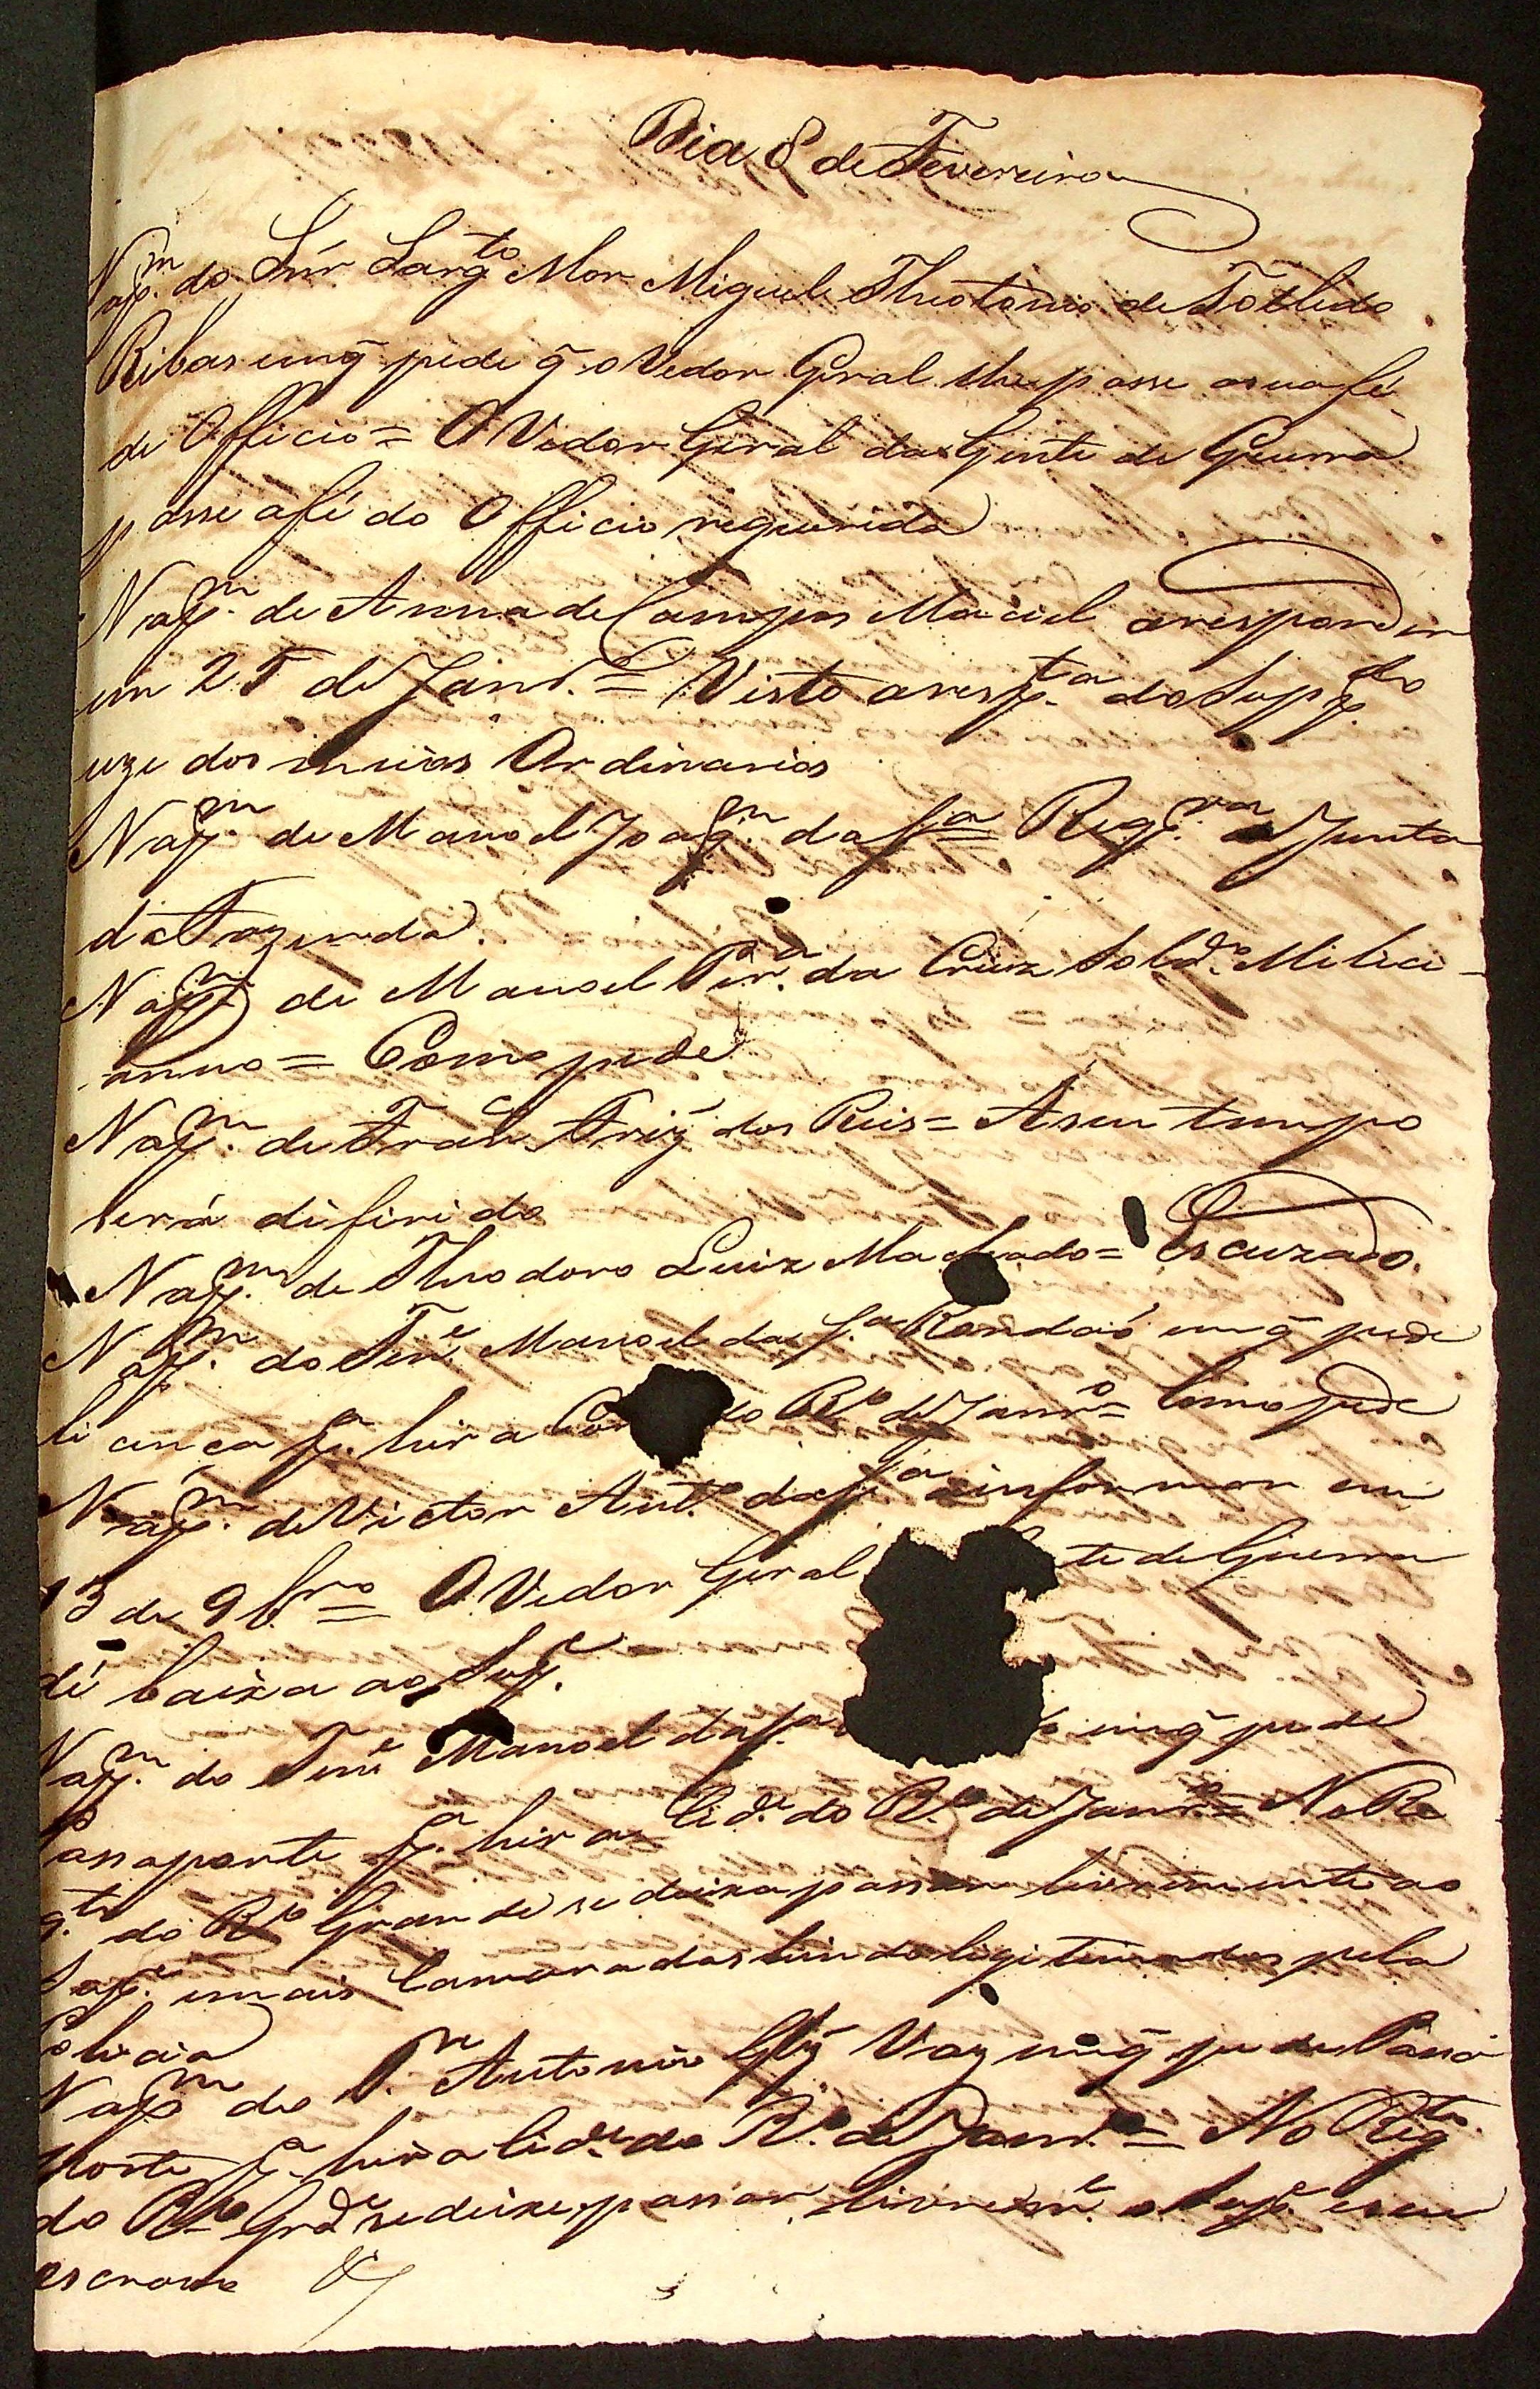 Dia 8 de Fevereiro
Na p.m do Snr Sarg.to Mor Miguel Theotonio de Tolledo
Ribas em q̃ pede q̃ o Vedor Geral lhe passe a sua fé
de Officio = O Vedor Geral da Gente de Guerra
passe a fé do Officio requerida
Na p.m de Anna de Campos Maciel a responder
em 25 de Janr.o = Visto a resp.ta do Supp.do
uze dos meios Ordinarios
Na p.m de Manoel Joaq.m da S.a = Req.ra a Junta
da Fazenda.
Na p.m de Manoel Per.a da Cruz Sold.o Milici-
anno = Como pede
Na p.m de Fran.co Friz̃ dos Reis = A seu tempo
será difirido
Na p.m de Theodoro Luiz Machado = Escuzado.
Na p.m do Ten.e Manoel da S.a Rondaõ em q̃ pede
licença p.a hir a Cor do R.o de Janr.o = Como pede
Na p.m de Victor Ant.o da S.a a informar em
13 de 9br.o = O Vedor Geral te de Guerra
dé baixa ao Sup.e
Na p.m do Ten.e Manoel da S.a em q̃ pede
Passaporte p.a hir a Cid.e do R.o de Janr.o = No Re
g.to do R.o Grande se deixa passar livremente ao
Sup.e e mais Camaradas hindo ligitimados pela
Policia
Na p.m do P.e Antonio Glz̃ Vaz em q̃ pede Passa
porte p.a hir a Cid.e do R.o de Janr.o = No Reg.to
do R.o Grd.e se deixe passar livrem.e o Sup.e e seu
escravo &